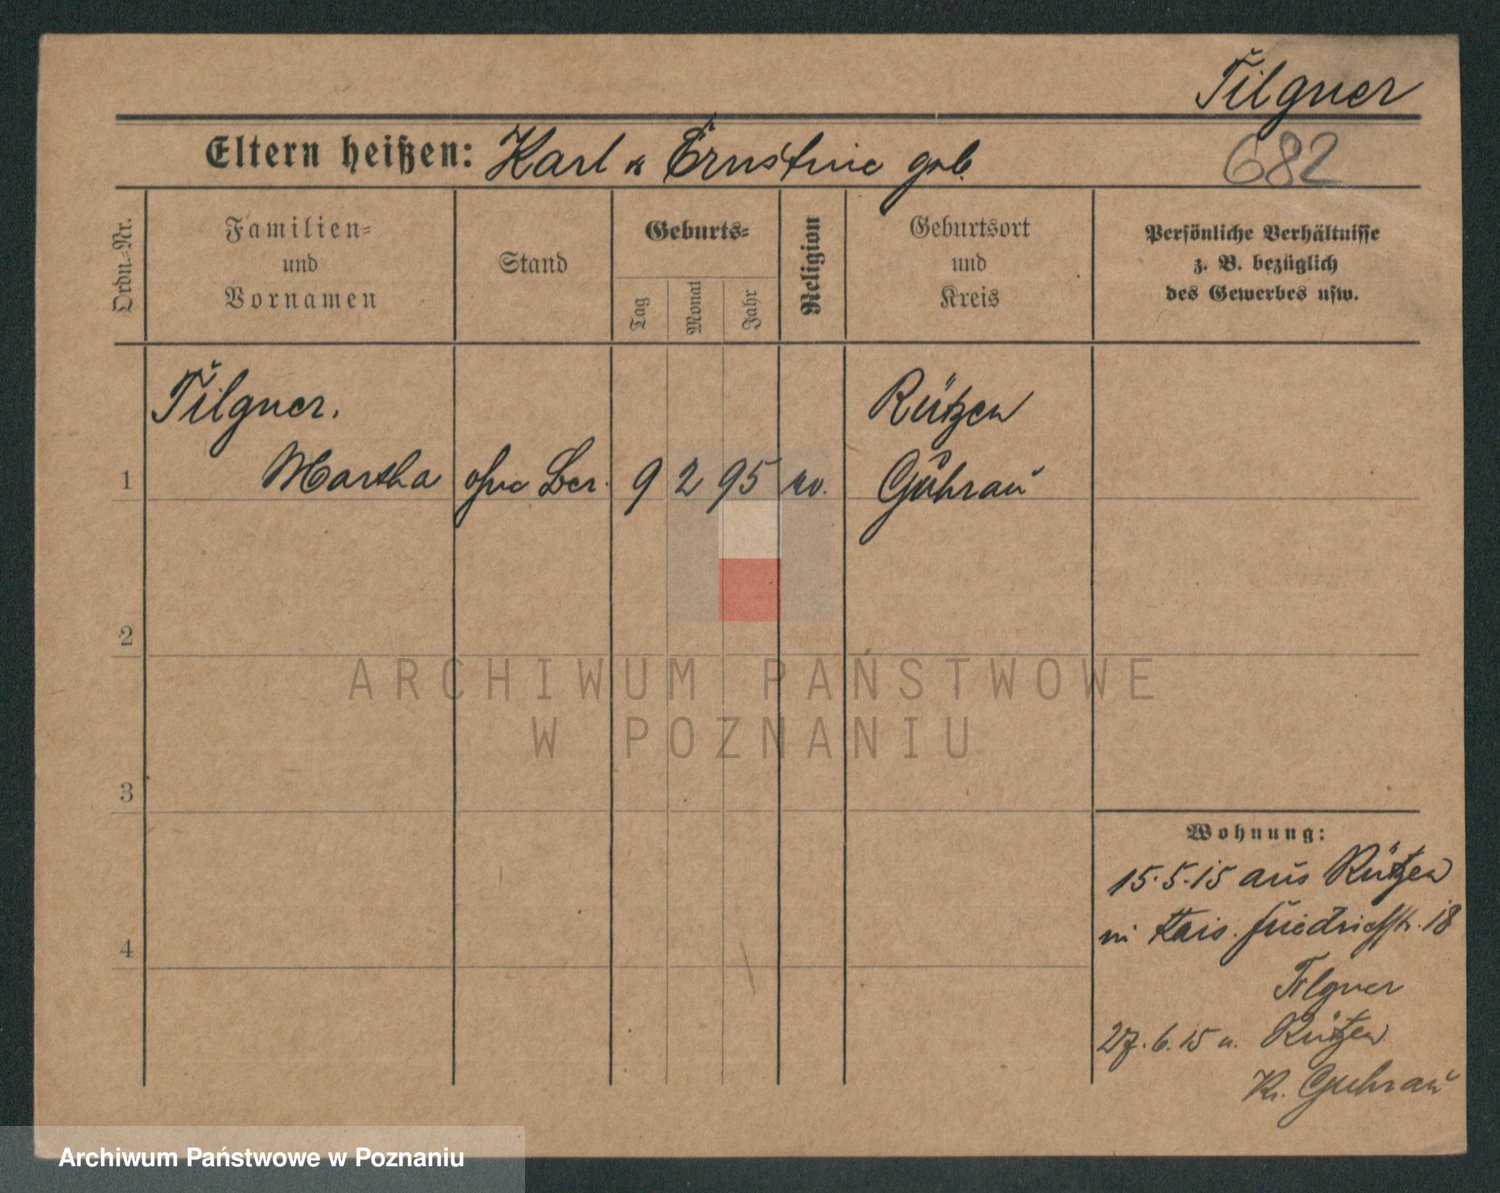 Tilgner
Eltern heißen: Karl u Ernstine geb.
682
Ordn.-Nr.
Familien-
und
Vornamen
Stand
Geburts-
Tag
Monat
Jahr
Religion
Geburtsort
und
Kreis
Persönliche Verhältnisse
z. B. bezüglich
des Gewerbes usw.
Tilgner.
Rützen
1 Martha ohne Ber. 9 2 95 ev. Guhrau
2
ARCHIWUM PAŃSTWOWE
W POZNANIU
3
Wohnung:
15.5.15 aus Rützen
Kais. Friedrichstr. 18
4
Tilgner
27.6.15 n. Rützen
Kr. Guhrau
Archiwum Państwowe w Poznaniu